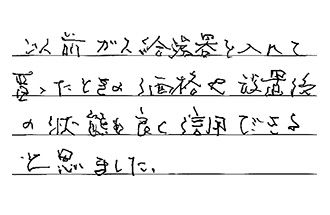 以前ガス給湯器を入れて
買ったときの価格や設置後
の状態も良く信用できる
と思いました。